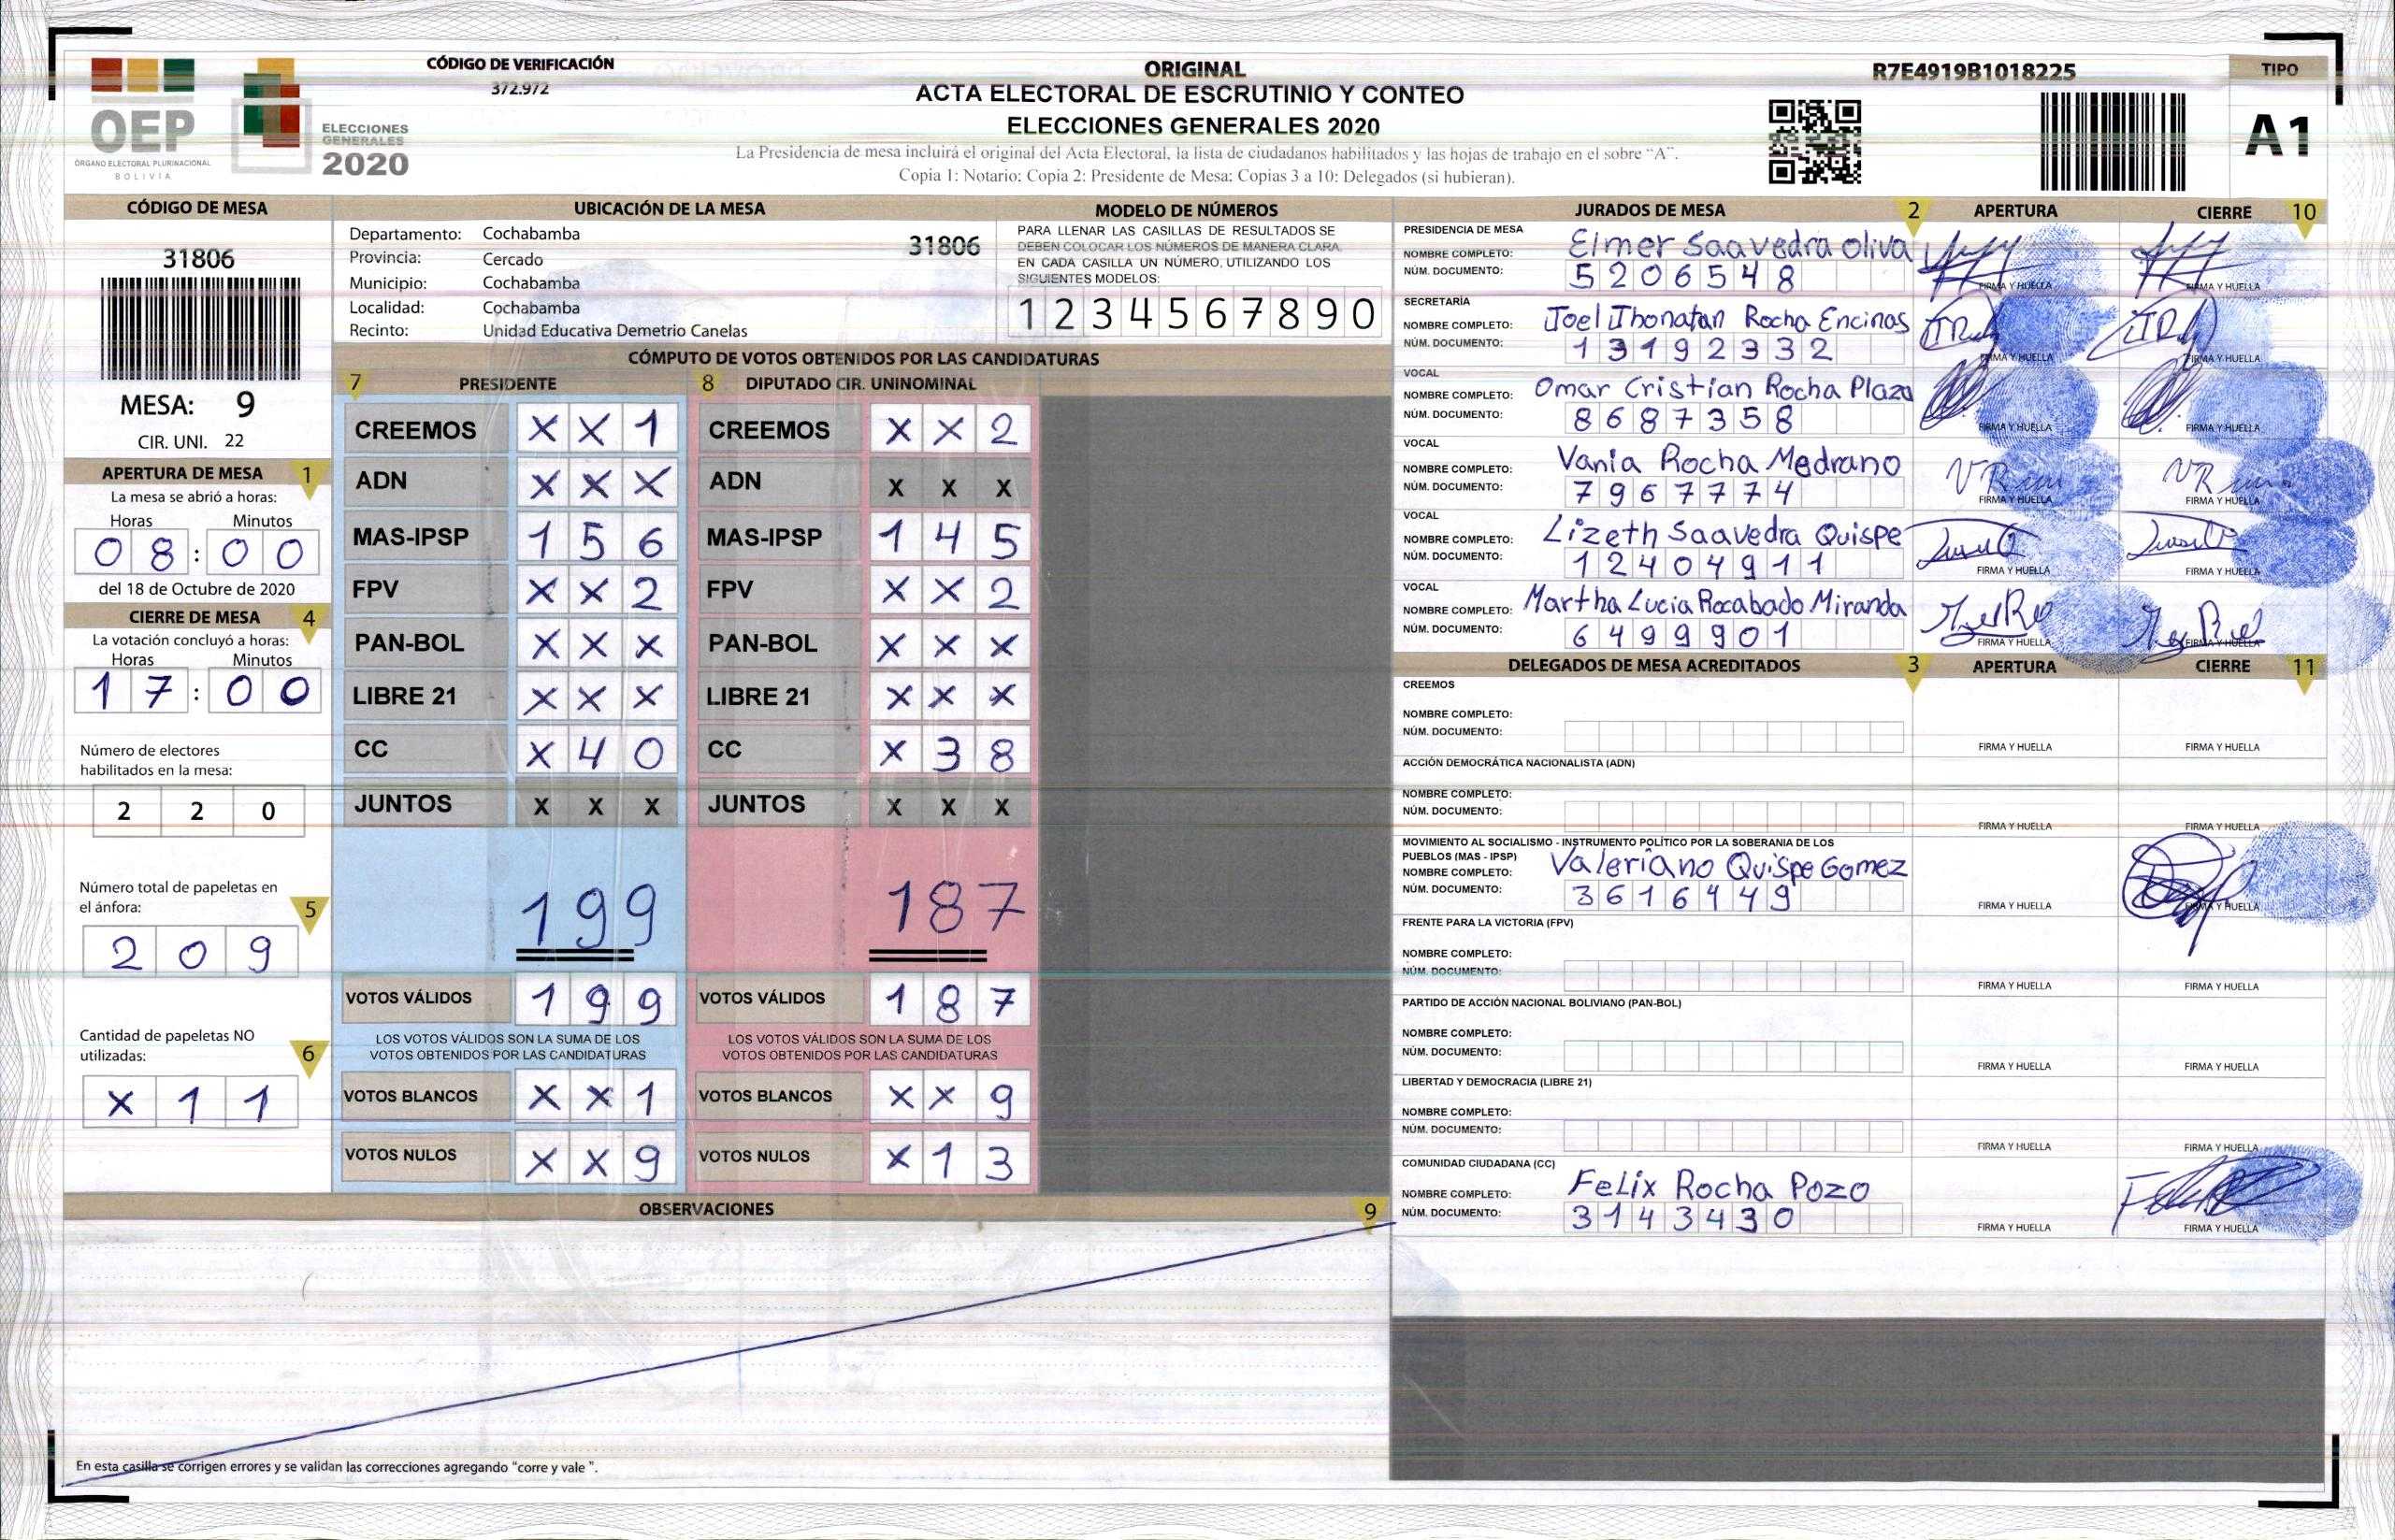 CÓDIGO DE VERIFICACIÓN
372.972
OEP
ÓRGANO ELECTORAL PLURINACIONAL
BOLIVIA
ELECCIONES
GENERALES
2020
ORIGINAL
ACTA ELECTORAL DE ESCRUTINIO Y CONTEO
ELECCIONES GENERALES 2020
La Presidencia de mesa incluirá el original del Acta Electoral, la lista de ciudadanos habilitados y las hojas de trabajo en el sobre "A".
Copia 1: Notario: Copia 2: Presidente de Mesa: Copias 3 a 10: Delegados (si hubieran).
R7E4919B1018225
TIPO
A1
CÓDIGO DE MESA
31806
MESA: 9
CIR. UNI. 22
APERTURA DE MESA 1
La mesa se abrió a horas:
Horas Minutos
0 8 : 0 0
del 18 de Octubre de 2020
CIERRE DE MESA 4
La votación concluyó a horas:
Horas Minutos
1 7 : 0 0
Número de electores
habilitados en la mesa:
2 2 0
Número total de papeletas en
el ánfora: 5
2 0 9
Cantidad de papeletas NO
utilizadas: 6
X 1 1
UBICACIÓN DE LA MESA
Departamento: Cochabamba
31806
Provincia: Cercado
Municipio: Cochabamba
Localidad: Cochabamba
Recinto: Unidad Educativa Demetrio Canelas
MODELO DE NÚMEROS
PARA LLENAR LAS CASILLAS DE RESULTADOS SE
DEBEN COLOCAR LOS NÚMEROS DE MANERA CLARA.
EN CADA CASILLA UN NÚMERO, UTILIZANDO LOS
SIGUIENTES MODELOS:
1 2 3 4 5 6 7 8 9 0
CÓMPUTO DE VOTOS OBTENIDOS POR LAS CANDIDATURAS
7 PRESIDENTE 8 DIPUTADO CIR. UNINOMINAL
CREEMOS X X 1 CREEMOS X X 2
ADN X X X ADN X X X
MAS-IPSP 1 5 6 MAS-IPSP 1 4 5
FPV X X 2 FPV X X 2
PAN-BOL X X X PAN-BOL X X X
LIBRE 21 X X X LIBRE 21 X X X
CC X 4 0 CC X 3 8
JUNTOS X X X JUNTOS X X X
199 187
VOTOS VÁLIDOS 1 9 9 VOTOS VÁLIDOS 1 8 7
LOS VOTOS VÁLIDOS SON LA SUMA DE LOS LOS VOTOS VÁLIDOS SON LA SUMA DE LOS
VOTOS OBTENIDOS POR LAS CANDIDATURAS VOTOS OBTENIDOS POR LAS CANDIDATURAS
VOTOS BLANCOS X X 1 VOTOS BLANCOS X X 9
VOTOS NULOS X X 9 VOTOS NULOS X 1 3
OBSERVACIONES 9
En esta casilla se corrigen errores y se validan las correcciones agregando "corre y vale ".
JURADOS DE MESA 2 APERTURA CIERRE 10
PRESIDENCIA DE MESA
NOMBRE COMPLETO: Elmer Saavedra Oliva
NÚM. DOCUMENTO: 5 2 0 6 5 4 8
FIRMA Y HUELLA FIRMA Y HUELLA
SECRETARÍA
NOMBRE COMPLETO: Joel Jhonatan Rocha Encinas
NÚM. DOCUMENTO: 1 3 1 9 2 3 3 2
FIRMA Y HUELLA FIRMA Y HUELLA
VOCAL
NOMBRE COMPLETO: Omar Cristian Rocha Plaza
NÚM. DOCUMENTO: 8 6 8 7 3 5 8
FIRMA Y HUELLA FIRMA Y HUELLA
VOCAL
NOMBRE COMPLETO: Vania Rocha Medrano
NÚM. DOCUMENTO: 7 9 6 7 7 7 4
FIRMA Y HUELLA FIRMA Y HUELLA
VOCAL
NOMBRE COMPLETO: Lizeth Saavedra Quispe
NÚM. DOCUMENTO: 1 2 4 0 4 9 1 1
FIRMA Y HUELLA FIRMA Y HUELLA
VOCAL
NOMBRE COMPLETO: Martha Lucia Rocabado Miranda
NÚM. DOCUMENTO: 6 4 9 9 9 0 1
FIRMA Y HUELLA FIRMA Y HUELLA
DELEGADOS DE MESA ACREDITADOS 3 APERTURA CIERRE 11
CREEMOS
NOMBRE COMPLETO:
NÚM. DOCUMENTO:
FIRMA Y HUELLA FIRMA Y HUELLA
ACCIÓN DEMOCRÁTICA NACIONALISTA (ADN)
NOMBRE COMPLETO:
NÚM. DOCUMENTO:
FIRMA Y HUELLA FIRMA Y HUELLA
MOVIMIENTO AL SOCIALISMO - INSTRUMENTO POLÍTICO POR LA SOBERANIA DE LOS
PUEBLOS (MAS - IPSP)
NOMBRE COMPLETO: Valeriano Quispe Gomez
NÚM. DOCUMENTO: 3 6 1 6 4 4 9
FIRMA Y HUELLA FIRMA Y HUELLA
FRENTE PARA LA VICTORIA (FPV)
NOMBRE COMPLETO:
NÚM. DOCUMENTO:
FIRMA Y HUELLA FIRMA Y HUELLA
PARTIDO DE ACCIÓN NACIONAL BOLIVIANO (PAN-BOL)
NOMBRE COMPLETO:
NÚM. DOCUMENTO:
FIRMA Y HUELLA FIRMA Y HUELLA
LIBERTAD Y DEMOCRACIA (LIBRE 21)
NOMBRE COMPLETO:
NÚM. DOCUMENTO:
FIRMA Y HUELLA FIRMA Y HUELLA
COMUNIDAD CIUDADANA (CC)
NOMBRE COMPLETO: Felix Rocha Pozo
NÚM. DOCUMENTO: 3 1 4 3 4 3 0
FIRMA Y HUELLA FIRMA Y HUELLA